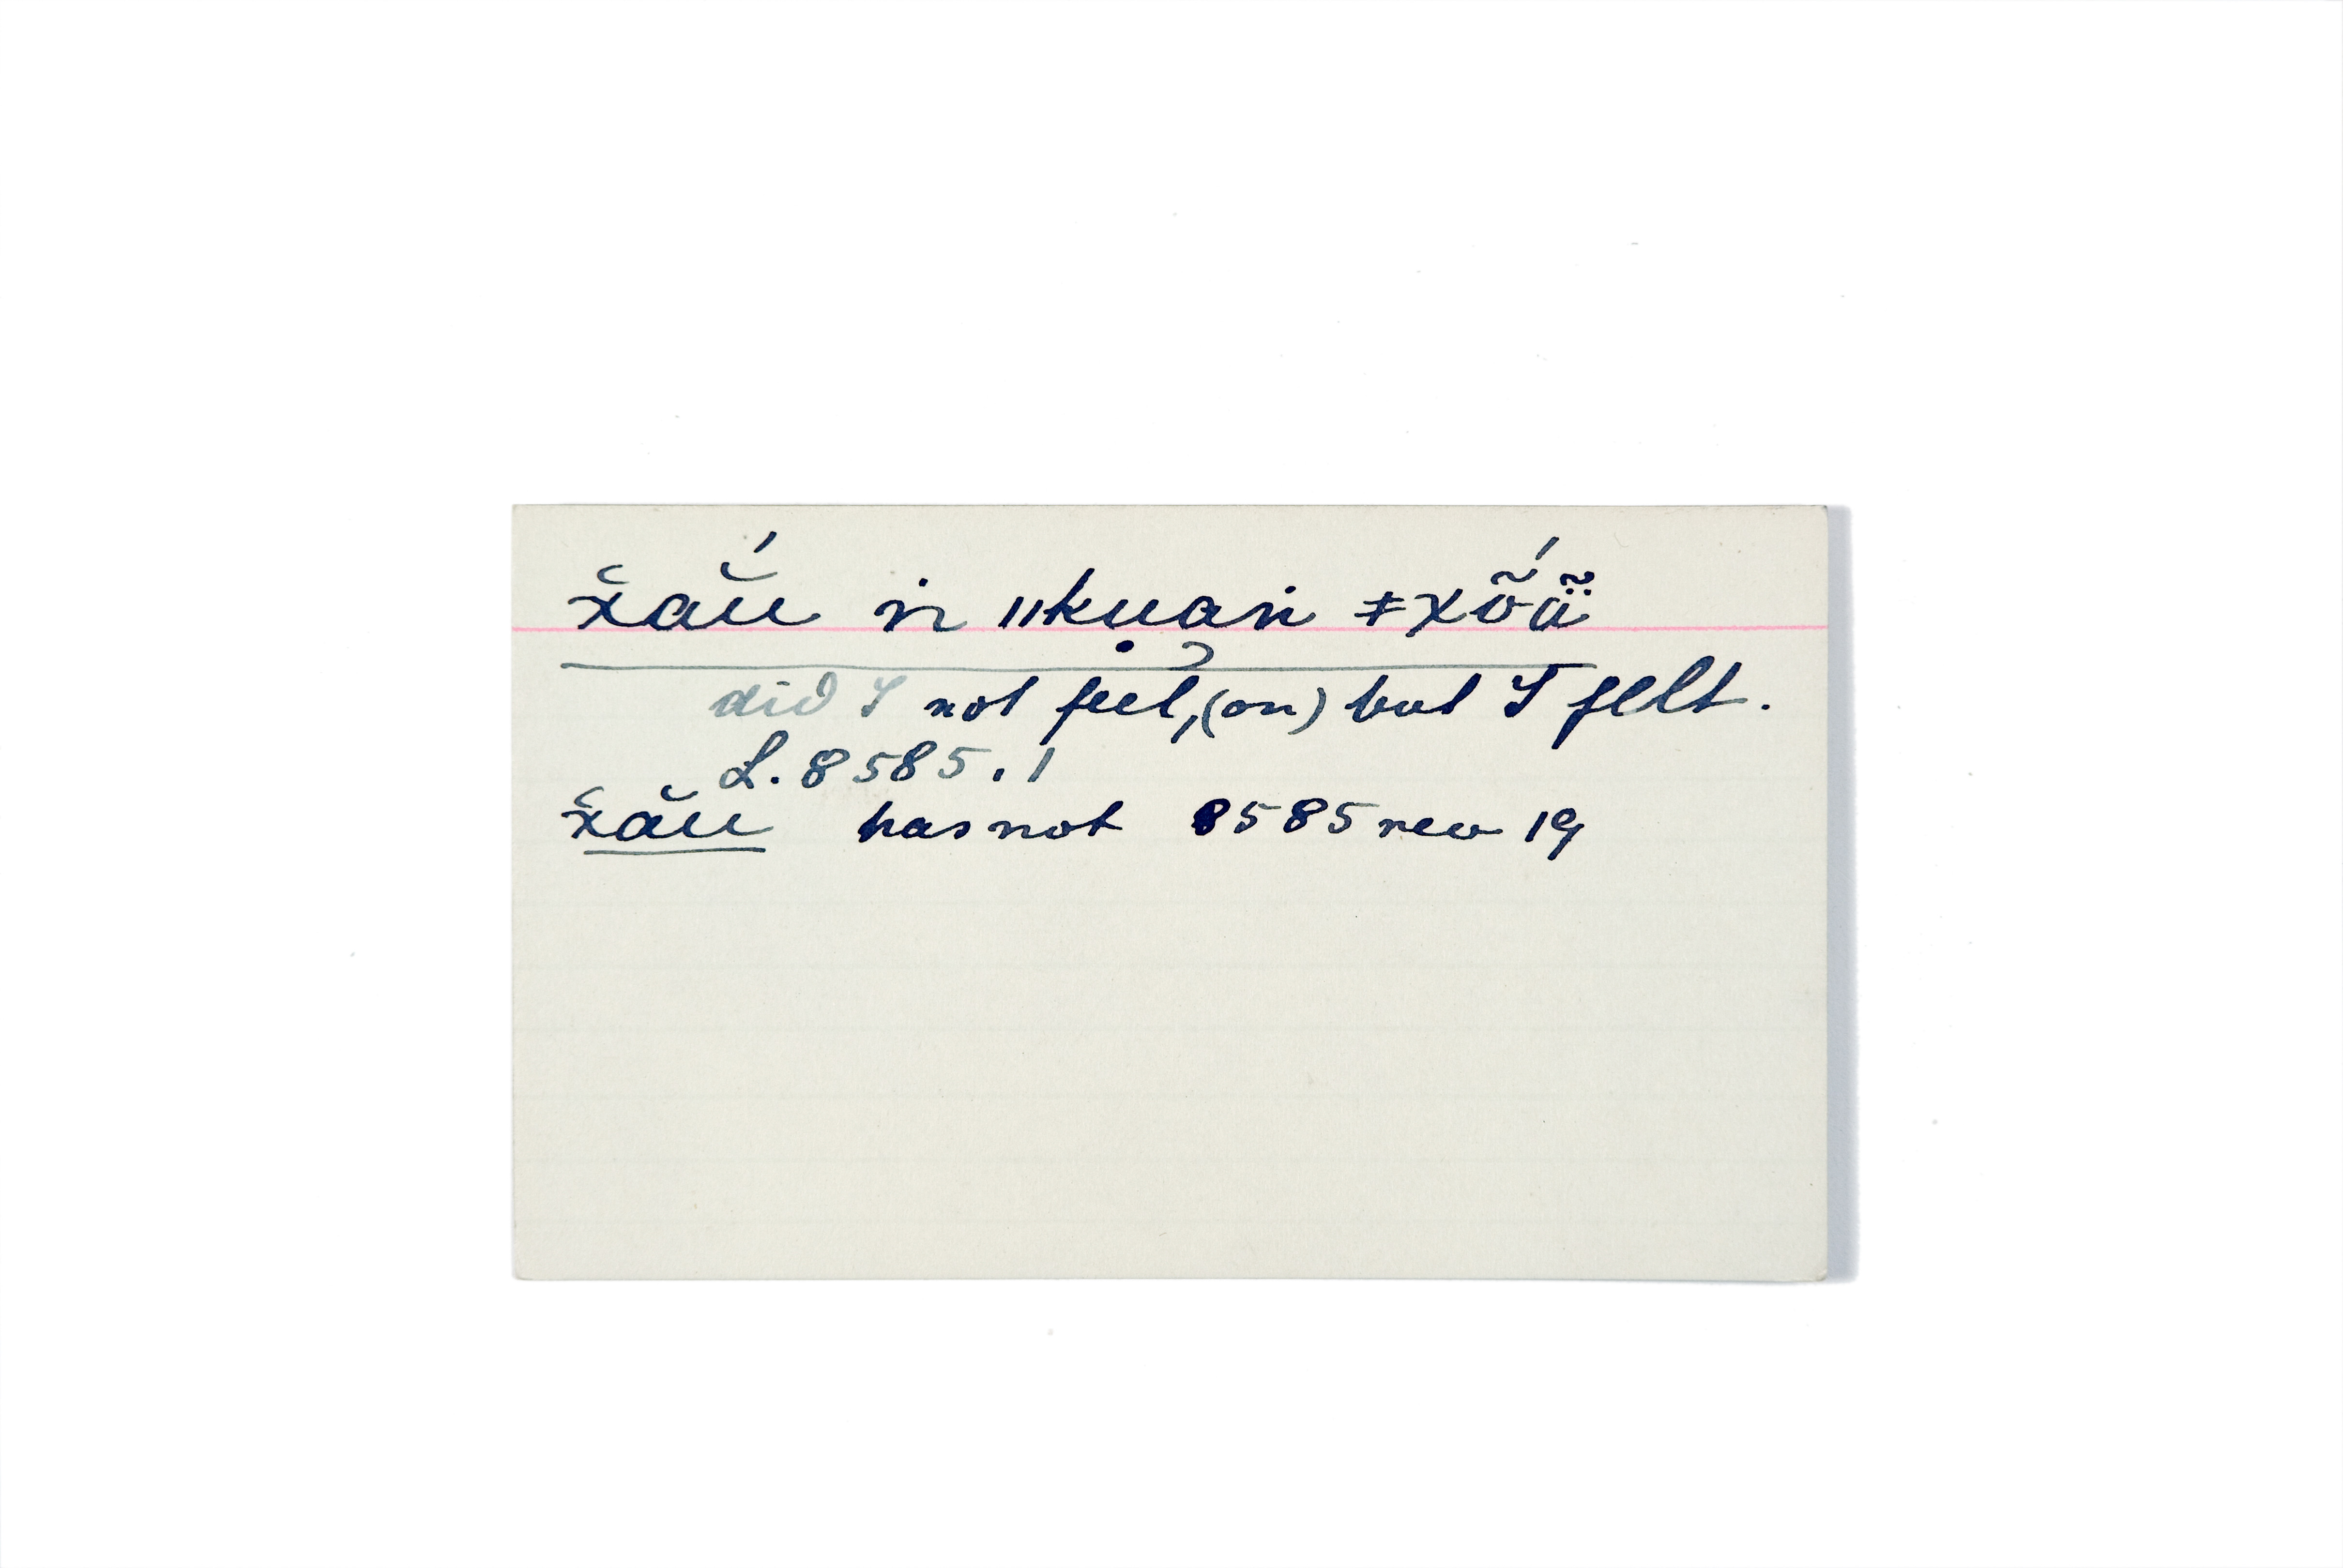 x̆aŭ́ n ǁkuan ǂxȭ́ü̃
did I not feel, (on) but I felt.
L. 8585. 1
x̆ăŭ has not 8585 rev 19